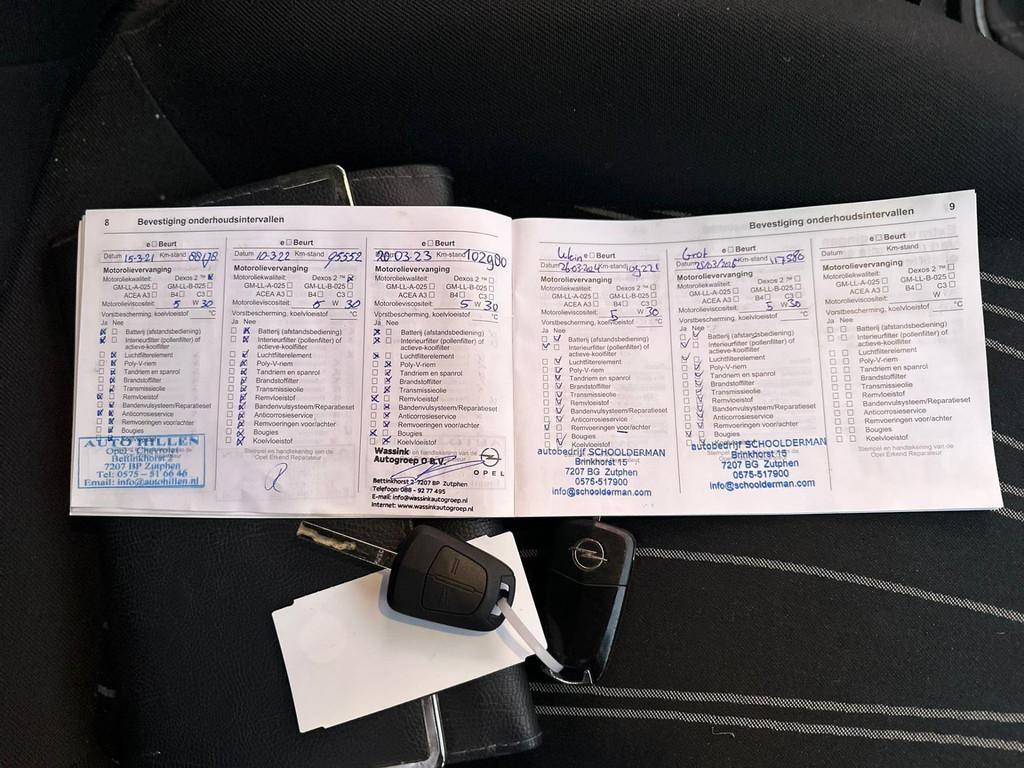 8 Bevestiging onderhoudsintervallen
e Beurt
Datum 15-3-21 Km-stand
Motorolievervanging
Motoroliekwaliteit: Dexos 2 ™
GM-LL-A-025 GM-LL-B-025
ACEA A3 B4 C3
Motorolieviscositeit: 5 W 30
Vorstbescherming, koelvloeistof °C
Ja Nee
Batterij (afstandsbediening)
Interieurfilter (pollenfilter) of
actieve-koolfilter
Luchtfilterelement
Poly-V-riem
Tandriem en spanrol
Brandstoffilter
Transmissieolie
Remvloeistof
Bandenvulsysteem/Reparatieset
Anticorrosieservice
Remvoeringen voor/achter
Bougies
AUTO HILLEN
Opel - Chevrolet
Bettinkhorst 2
7207 BP Zutphen
Tel: 0575 - 51 66 46
Email: info@autohillen.nl
e Beurt
Datum 10-3-22 Km-stand 95552
Motorolievervanging
Motoroliekwaliteit: Dexos 2 ™
GM-LL-A-025 GM-LL-B-025
ACEA A3 B4 C3
Motorolieviscositeit: 5 W 30
Vorstbescherming, koelvloeistof °C
Ja Nee
Batterij (afstandsbediening)
Interieurfilter (pollenfilter) of
actieve-koolfilter
Luchtfilterelement
Poly-V-riem
Tandriem en spanrol
Brandstoffilter
Transmissieolie
Remvloeistof
Bandenvulsysteem/Reparatieset
Anticorrosieservice
Remvoeringen voor/achter
Bougies
Koelvloeistof
Stempel en handtekening van de
Opel Erkend Reparateur
e Beurt
Datum 20-03-23 Km-stand
Motorolievervanging
Motoroliekwaliteit: Dexos 2 ™
GM-LL-A-025 GM-LL-B-025
ACEA A3 B4 C3
Motorolieviscositeit: 5 W 30
Vorstbescherming, koelvloeistof °C
Ja Nee
Batterij (afstandsbediening)
Interieurfilter (pollenfilter) of
actieve-koolfilter
Luchtfilterelement
Poly-V-riem
Tandriem en spanrol
Brandstoffilter
Transmissieolie
Remvloeistof
Bandenvulsysteem/Reparatieset
Anticorrosieservice
Remvoeringen voor/achter
Bougies
Koelvloeistof
Wassink
Autogroep O B.V.
OPEL
Bettinkhorst 2 7207 BP Zutphen
Telefoon: 088 - 92 77 495
E-mail: info@wassinkautogroep.nl
Internet: www.wassinkautogroep.nl
Bevestiging onderhoudsintervallen 9
Klein e Beurt
Datum 26-03-2024 Km-stand 109221
Motorolievervanging
Motoroliekwaliteit: Dexos 2 ™
GM-LL-A-025 GM-LL-B-025
ACEA A3 B4 C3
Motorolieviscositeit: 5 W 30
Vorstbescherming, koelvloeistof °C
Ja Nee
Batterij (afstandsbediening)
Interieurfilter (pollenfilter) of
actieve-koolfilter
Luchtfilterelement
Poly-V-riem
Tandriem en spanrol
Brandstoffilter
Transmissieolie
Remvloeistof
Bandenvulsysteem/Reparatieset
Anticorrosieservice
Remvoeringen voor/achter
Bougies
Koelvloeistof
autobedrijf SCHOOLDERMAN
Brinkhorst 15
7207 BG Zutphen
0575-517900
info@schoolderman.com
Groot e Beurt
Datum Km-stand 117580
Motorolievervanging
Motoroliekwaliteit: Dexos 2 ™
GM-LL-A-025 GM-LL-B-025
ACEA A3 B4 C3
Motorolieviscositeit: 5 W 30
Vorstbescherming, koelvloeistof °C
Ja Nee
Batterij (afstandsbediening)
Interieurfilter (pollenfilter) of
actieve-koolfilter
Luchtfilterelement
Poly-V-riem
Tandriem en spanrol
Brandstoffilter
Transmissieolie
Remvloeistof
Bandenvulsysteem/Reparatieset
Anticorrosieservice
Remvoeringen voor/achter
Bougies
Koelvloeistof
autobedrijf SCHOOLDERMAN
Brinkhorst 15
7207 BG Zutphen
0575-517900
info@schoolderman.com
e Beurt
Datum Km-stand
Motorolievervanging
Motoroliekwaliteit: Dexos 2 ™
GM-LL-A-025 GM-LL-B-025
ACEA A3 B4 C3
Motorolieviscositeit: W
Vorstbescherming, koelvloeistof °C
Ja Nee
Batterij (afstandsbediening)
Interieurfilter (pollenfilter) of
actieve-koolfilter
Luchtfilterelement
Poly-V-riem
Tandriem en spanrol
Brandstoffilter
Transmissieolie
Remvloeistof
Bandenvulsysteem/Reparatieset
Anticorrosieservice
Remvoeringen voor/achter
Bougies
Koelvloeistof
Stempel en handtekening van de
Opel Erkend Reparateur